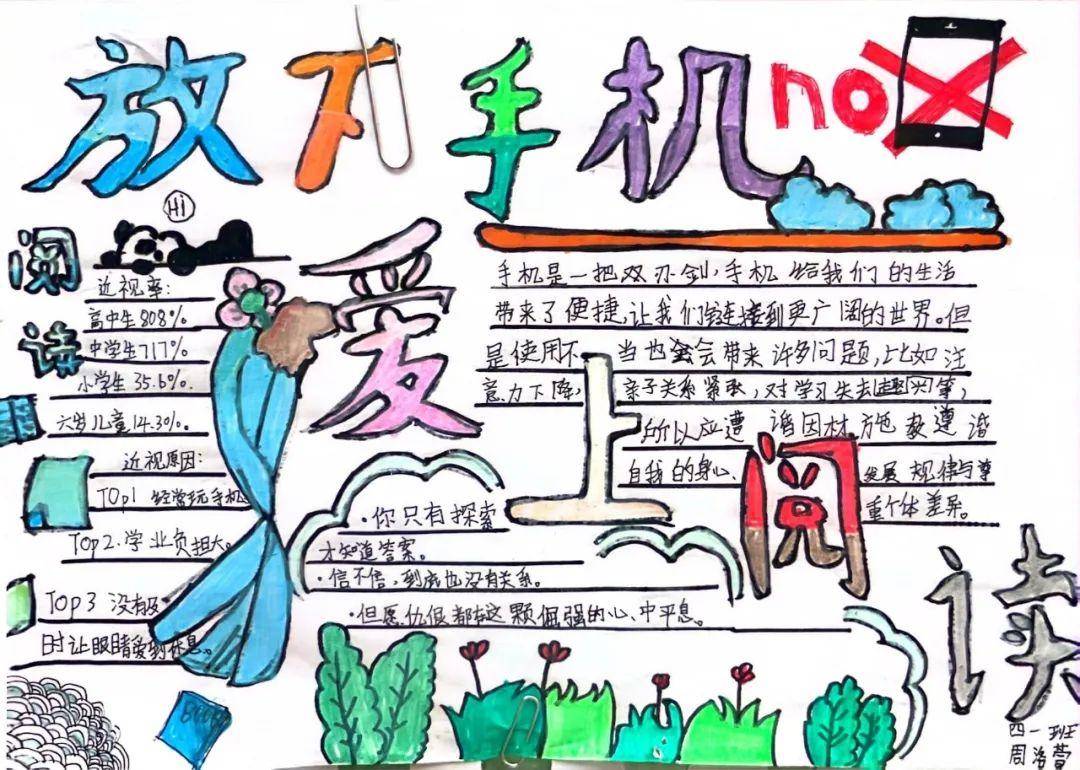 放下手机
no
爱上阅读
Hi
阅读
近视率:
高中生808%
中学生717%
小学生 35.6%.
六岁儿童14.30%。
近视原因:
Top1 经常玩手机
Top2.学业负担大。
Top3 没有及
时让眼睛受到休息。
手机是一把双刃剑,手机给我们的生活
带来了便捷,让我们能连接到更广阔的世界。但
是使用不当也会会带来许多问题,比如注
意力下降,亲子关系紧张,对学习失去趣等,
所以应遵 因材施教遵
自我的身心、发展规律与尊
重个体差异。
·你只有探索
才知道答案。
·信不信,到底也没有关系。
·但愿仇恨都在这颗倔强的心、中平息。
BOOK
四一班
周